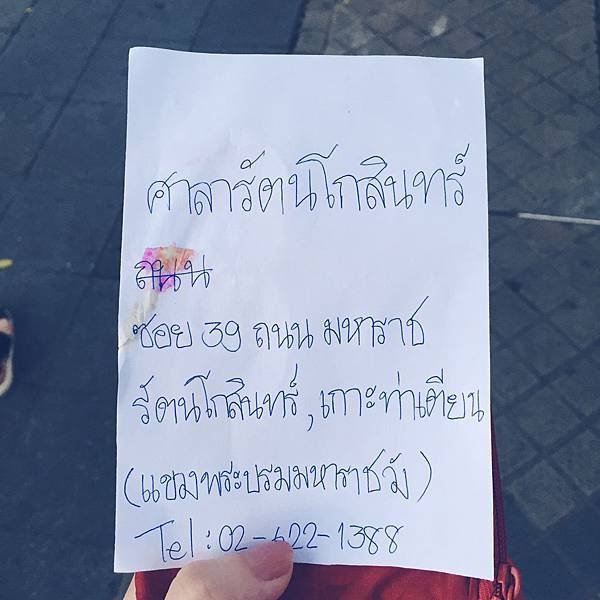 ศาลารัตนโกสินทร์
ถนน
ซอย 39 ถนน มหาราช
รัตนโกสินทร์, เกาะท่าเตียน
(แขวงพระบรมมหาราชวัง)
Tel : 02-622-1388